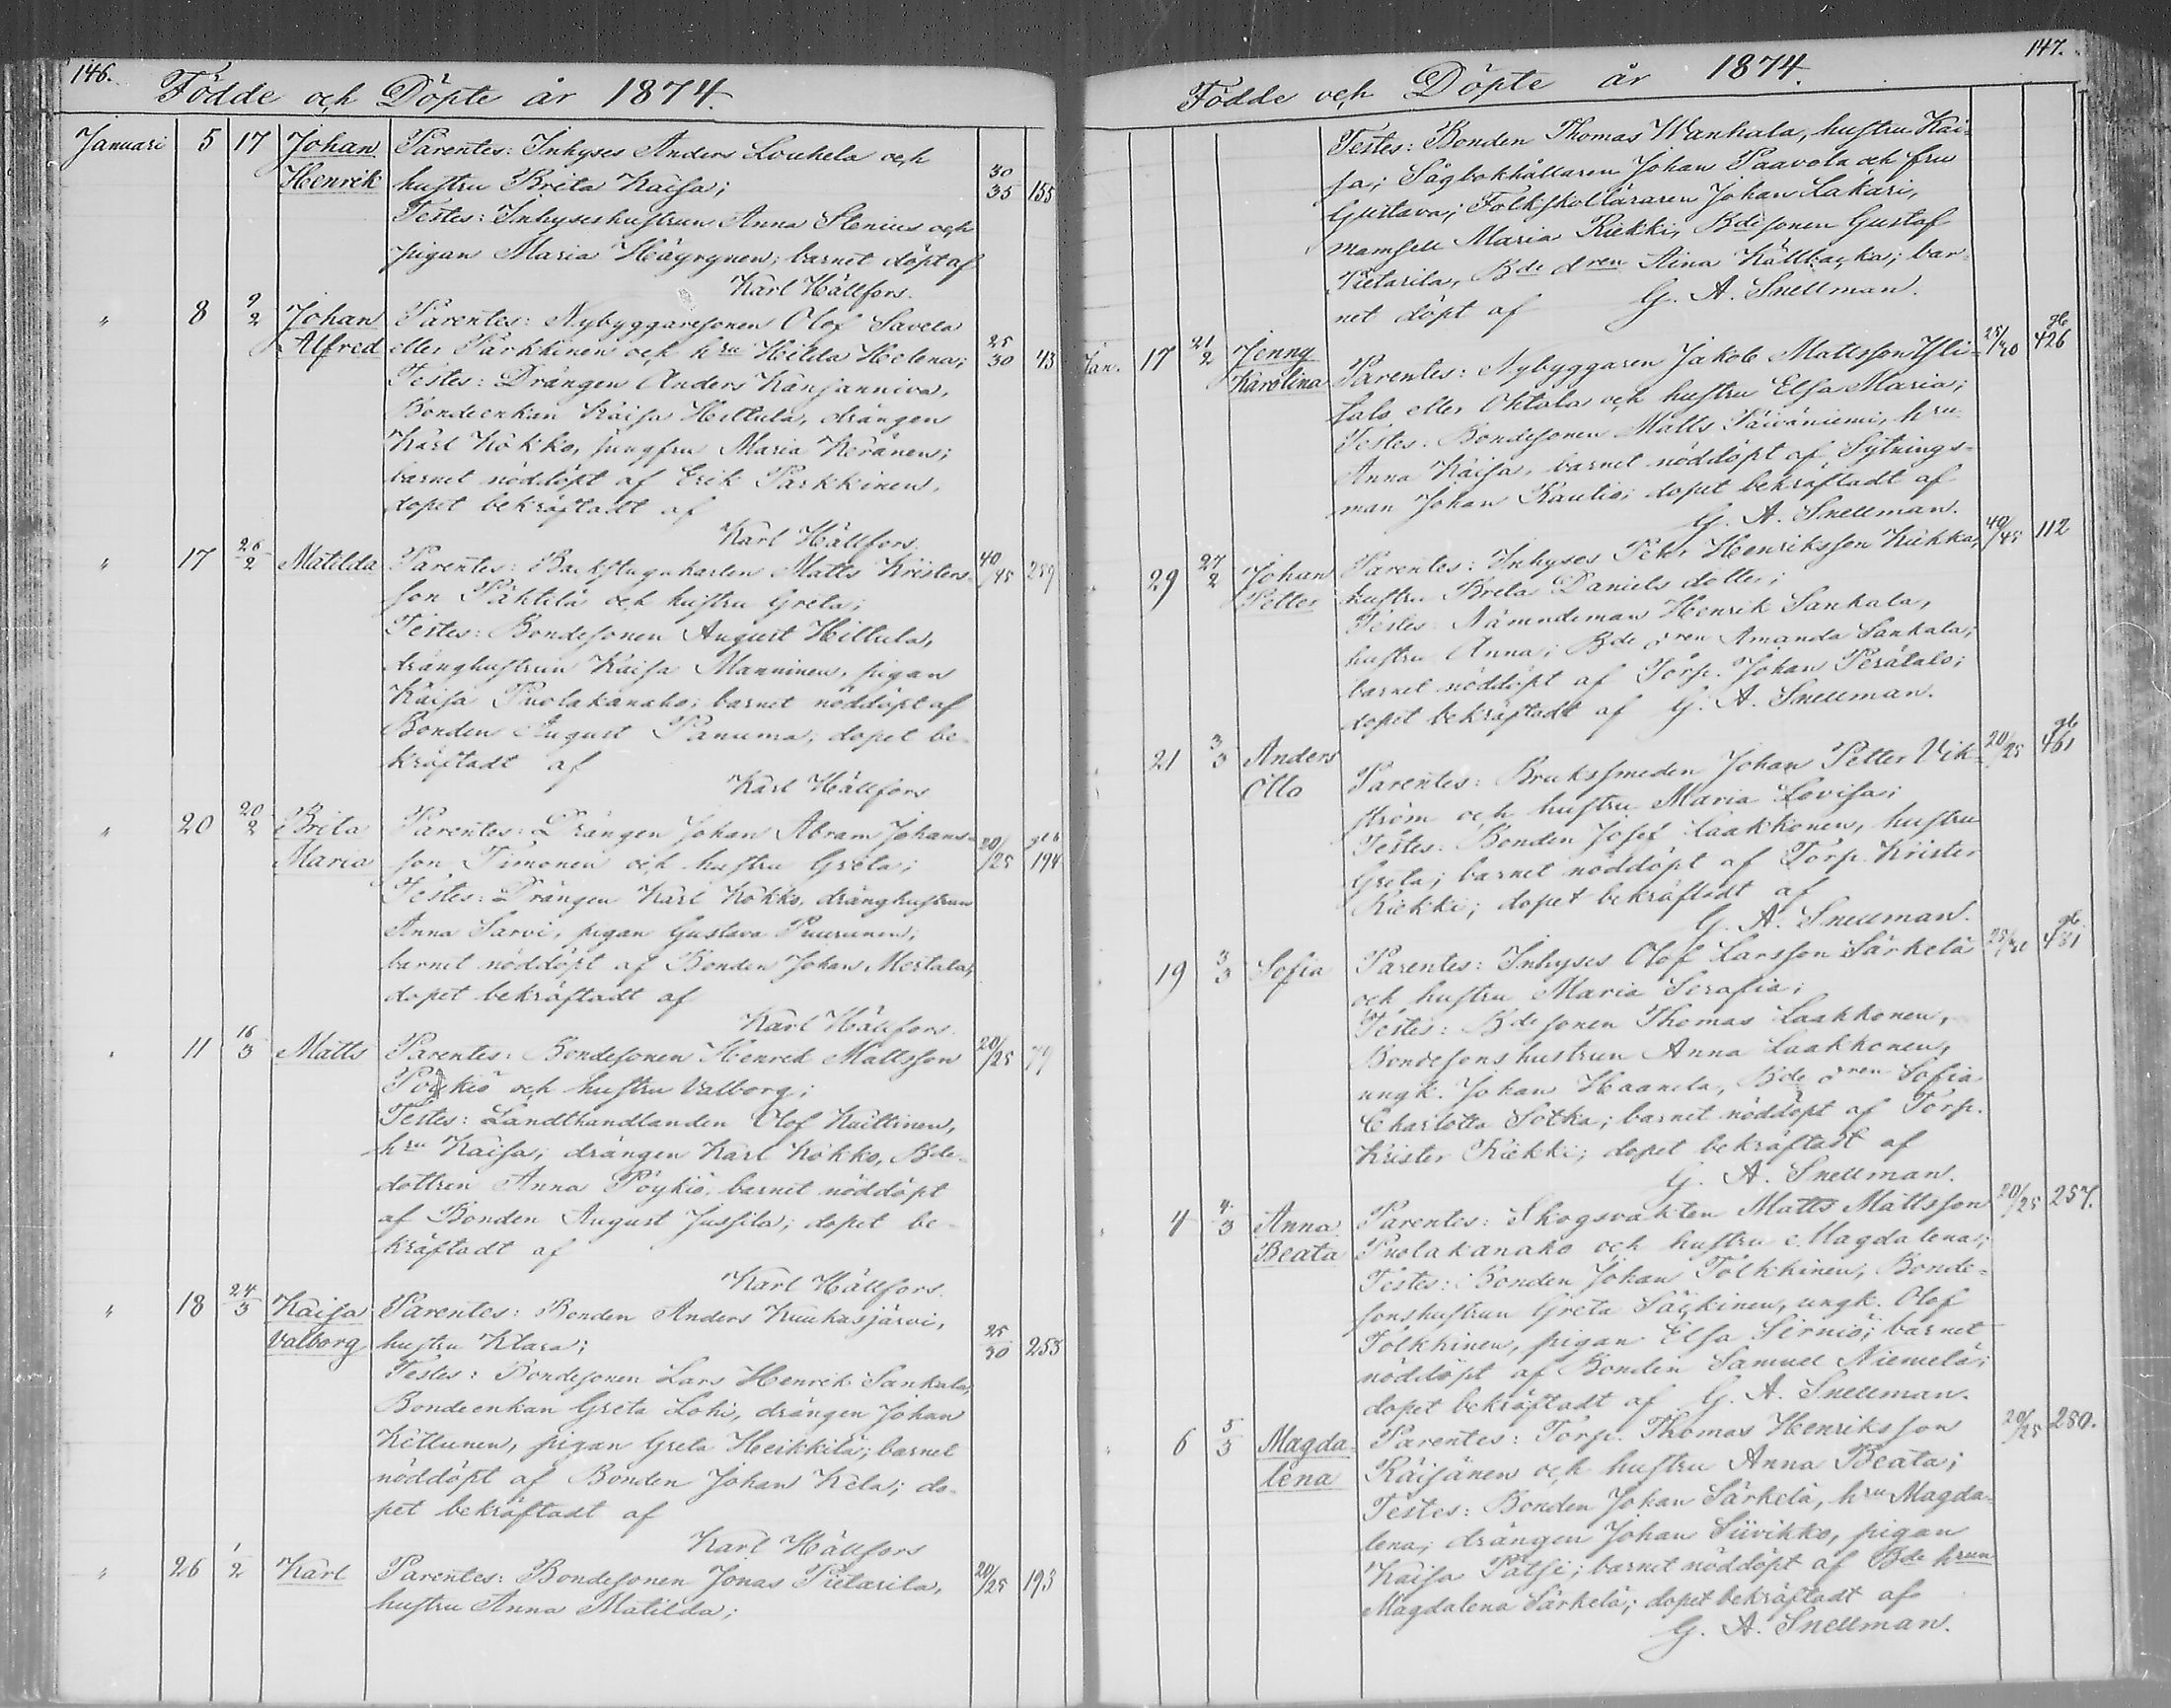 146.
Födde och Döpte år 1874.
Januari 5 17 Johan Parentes: Inhyses Anders Louhela och
Henrik hustru Brita Kaisa; 30/35 155
Testes: Inhyseshustrun Anna Stenius och
pigan Maria Häyrynen; barnet döpt af
Karl Hällfors.
" 8 9/2 Johan Parentes: Nybyggaresonen Olof Savela
Alfred eller Parkkinen och hru Hilda Helena; 25/30 43
Testes: Drängen Anders Kansanniva,
Bondeenkan Kaisa Hiltula, drängen
Karl Kokko, jungfru Maria Keränen;
barnet nöddöpt af Erik Parkkinen,
dopet bekräftadt af
Karl Hällfors.
" 17 26/2 Matilda Parentes: Backstugukarlen Matts Kristers- 40/45 259
son Pähtilä och hustru Greta;
Testes: Bondesonen August Hiltula,
dränghustrun Kaisa Manninen, pigan
Kaisa Puolakanaho; barnet nöddöpt af
Bonden August Panuma, dopet be-
kräftadt af
Karl Hällfors
" 20 20/2 Brita Parentes: Drängen Johan Abram Johans-
Maria son Timonen och hustru Greta; 20/25 194
Testes: Drängen Karl Kokko, dränghustrun
Anna Sarvi, pigan Gustava Puurunen;
barnet nöddöpt af Bonden Johan Mertala,
dopet bekräftadt af
Karl Hällfors.
" 11 16/3 Matts Parentes: Bondesonen Henrik Mattsson 20/25 79
Poykiö och hustru Valborg;
Testes: Landthandlanden Olof Kälttinen,
hru Kaisa; drängen Karl Kokko, Bde-
dottren Anna Pöykiö, barnet nöddöpt
af Bonden August Jussila; dopet be-
kräftadt af
Karl Hällfors.
" 18 24/3 Kaisa Parentes: Bonden Anders Kuukasjärvi,
Valborg hustru Klara; 25/30 255
Testes: Bondesonen Lars Henrik Sankala,
Bondeenkan Greta Lohi, drängen Johan
Kettunen, pigan Greta Heikkilä; barnet
nöddöpt af Bonden Johan Kela; do-
pet bekräftadt af
Karl Hällfors
" 26 1/2 Karl Parentes: Bondesonen Jonas Pietarila, 20/25 193
hustru Anna Matilda;
147.
Födde och Döpte år 1874.
Testes: Bonden Thomas Wanhala, hustru Kai-
sa; Sågbokhållaren Johan Paavola och fru
Gustava; Folkskolläraren Johan Lakari,
mamsell Maria Kiekki, Bdesonen Gustaf
Pietarila, Bde dren Aina Källbacka; bar-
net döpt af G. A. Snellman.
Jan. 17 21/2 Jenny Parentes: Nybyggaren Jakob Mattsson Yli- 25/30 gb 426
Karolina talo eller Ohtala och hustru Elsa Maria;
Testes: Bondesonen Matts Päiväniemi, hru
Anna Kaisa, barnet nöddöpt af Sytnings-
man Johan Rautio; dopet bekräftadt af
G. A. Snellman.
29 27/2 Johan Parentes: Inhyses Pehr Henriksson Kiekka, 40/45 112
Petter hustru Brita Daniels dotter;
Testes: Nämndeman Henrik Sankala,
hustru Anna; Bde dren Amanda Sankala;
barnet nöddöpt af Torp. Johan Perätalo;
dopet bekräftadt af G. A. Snellman.
21 3/3 Anders Parentes: Bruksmeden Johan Petter Vik- 20/25 gb 461
Otto ström och hustru Maria Lovisa;
Testes: Bonden Josef Laakkonen, hustru
Greta; barnet nöddöpt af Torp. Krister
Kiekki; dopet bekräftadt af
G. A. Snellman.
19 3/3 Sofia Parentes: Inhyses Olof Larsson Särkelä gb
och hustru Maria Serafia;
Testes: Bde sonen Thomas Laakkonen,
Bondesons hustrun Anna Laakkonen,
ungk. Johan Haanela, Bde dren Sofia
Charlotta Sotka; barnet nöddöpt af Torp.
Krister Kiekki; dopet bekräftadt af
G. A. Snellman.
4 4/3 Anna Parentes: Skogsvakten Matts Mattsson 20/25 257.
Beata Puolakanaho och hustru Magdalena;
Testes: Bonden Johan Tolkkinen, Bonde-
sonshustrun Greta Säckinen, ungk. Olof
Tolkkinen, pigan Elsa Sirniö; barnet
nöddöpt af Bonden Samuel Niemelä;
dopet bekräftadt af G. A. Snellman.
6 5/3 Magda- Parentes: Torp. Thomas Henriksson 20/25 280.
lena Räisänen och hustru Anna Beata;
Testes: Bonden Johan Särkelä, hru Magda-
lena; drängen Johan Siivikko, pigan
Kaisa Pätsi; barnet nöddöpt af Bde hrun
Magdalena Särkelä; dopet bekräftadt af
G. A. Snellman.